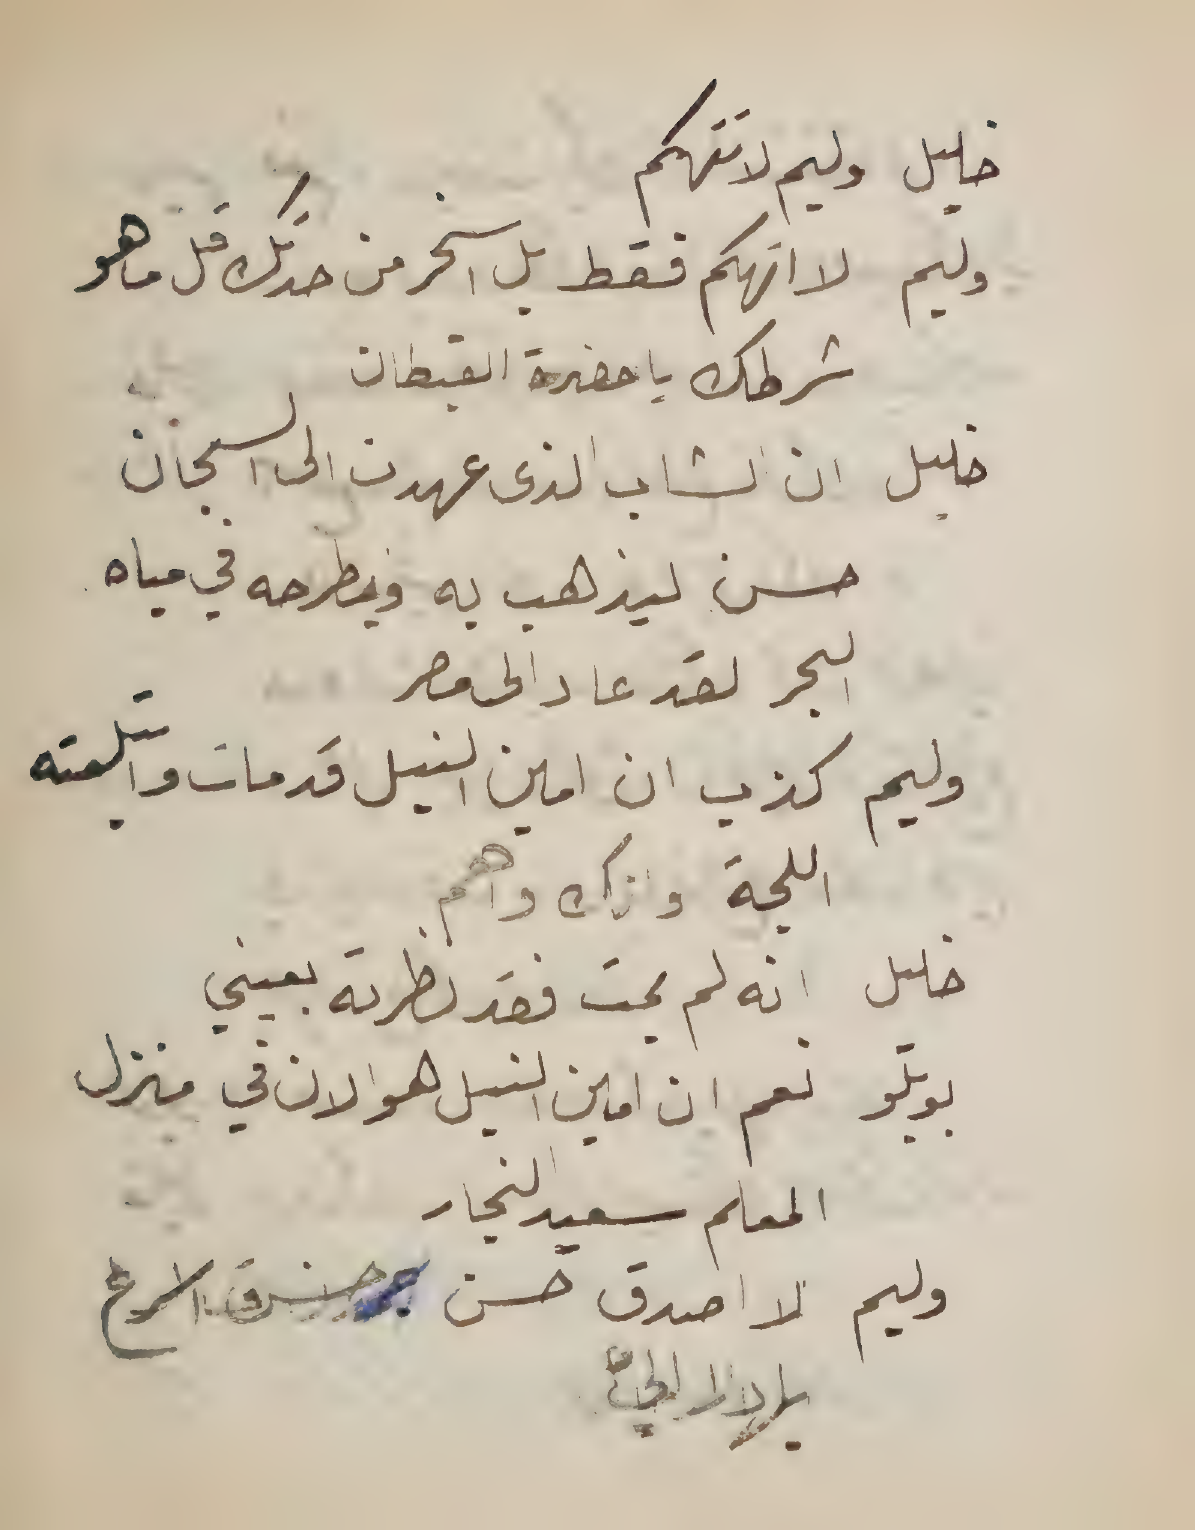 خليل وليم لا تتهكم
وليم لا اتهكم فقط بل اسخر من حديثك قل ما هو
شرطك يا حضرة القبطان
خليل ان الشاب الذى عهدت الى السجان
حسن ليذهب به ويطرحه في مياه
البحر لقد عاد الى مصر
وليم كذب ان امين النيل قد مات وابتلعته
اللجة وانك واهم
خليل انه لم يمت فقد نظرته بعيني
بوبلو نعم ان امين النيل هو الان في منزل
المعلم سعيد النجار
وليم لا اصدق حسن